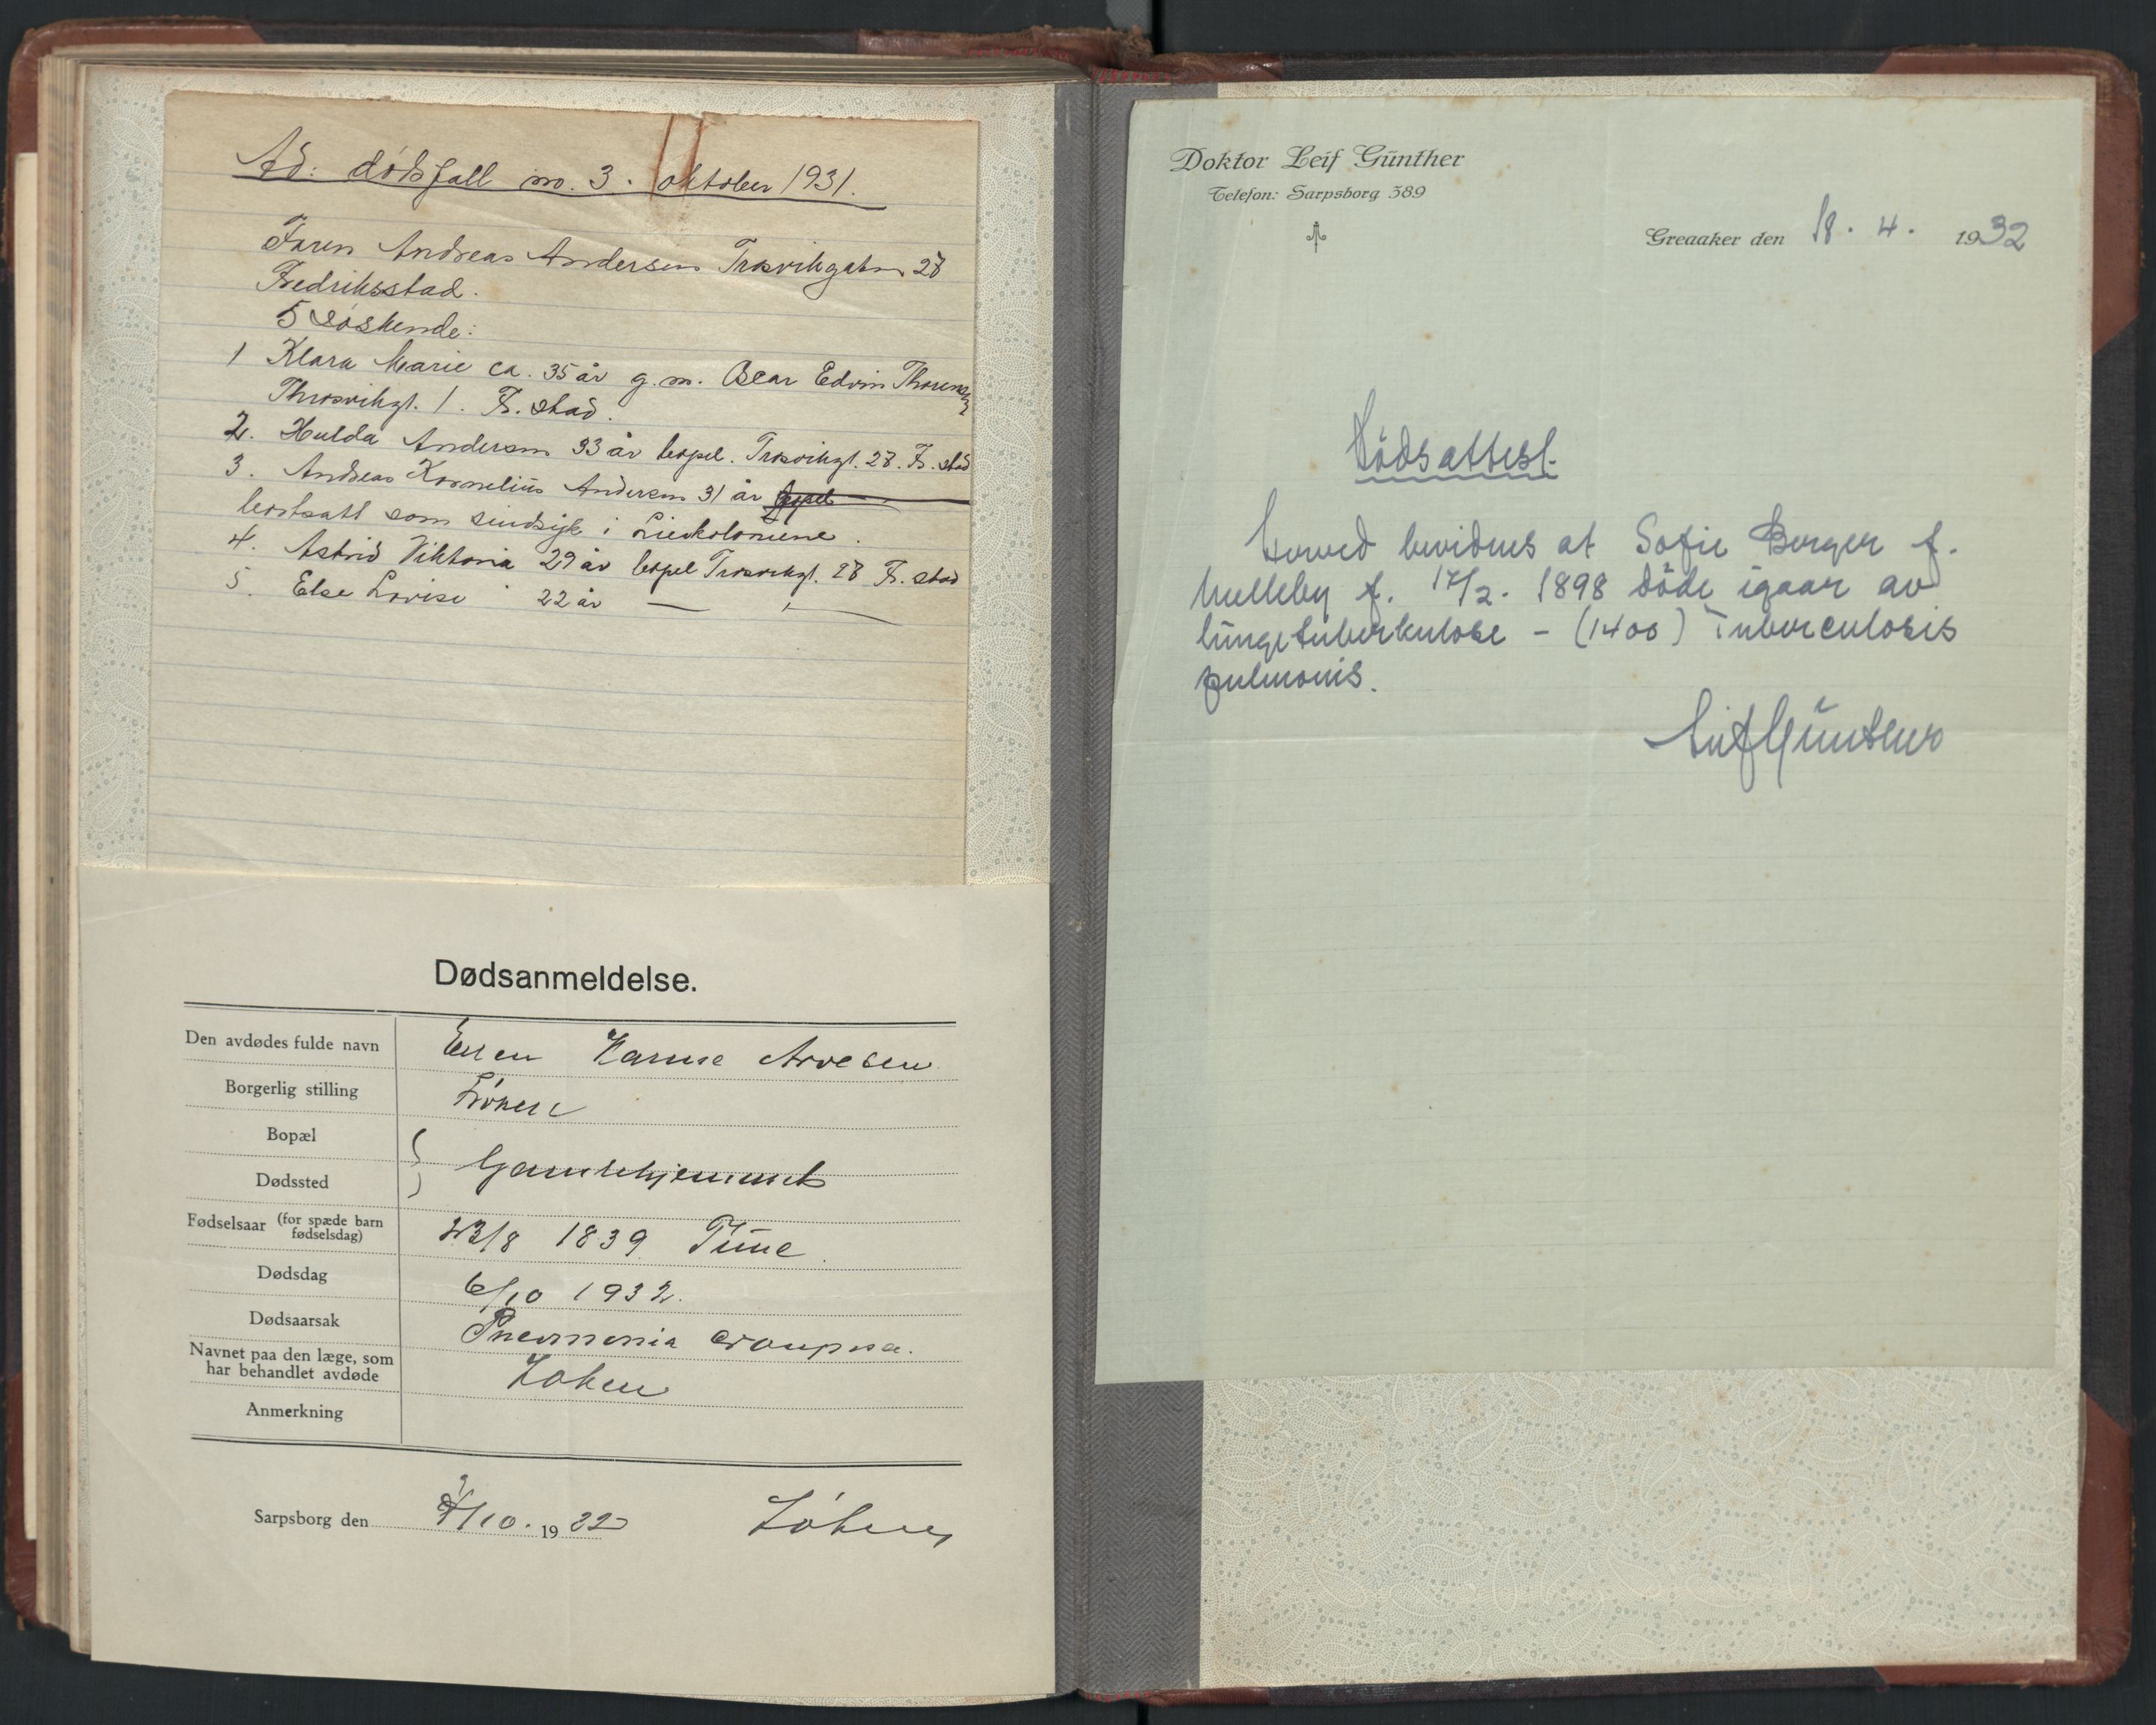 Ad: dødsfall no. 3. oktober 1931.
Faren Andreas Andersen Trosvikgaten 28
Fredriksstad.
5 søskende:
1 Klara Marie ca. 35 år g. m. Oscar Edvin
Throsvikgt. 1. Fr. stad.
2. Hulda Andersen 33 år bopel. Trosvikgt. 28. Fr. stad
3. Andreas Kornelius Andersen 31 år bopel
bortsatt som sindsyk i Lierkolonierne.
4. Astrid Viktoria 29 år bopel Trosvikgt. 28 Fr. stad
5. Else Lovise 22 år — " —
Dødsanmeldelse.
Den avdødes fulde navn Ellen Karine Arvesen
Borgerlig stilling Frøken
Bopæl
Dødssted } Gamlehjemmet
Fødselsaar (for spæde barn fødselsdag) 23/8 1839 Tune.
Dødsdag 6/10 1932.
Dødsaarsak Pneumonia crouposa.
Navnet paa den læge, som
har behandlet avdøde Løken
Anmerkning
Sarpsborg den 7/10. 19 32 Løken
Doktor Leif Günther
Telefon: Sarpsborg 389
Greaaker den 18. 4. 1932
Dödsattest.
Herved bevidnes at Sofie Borger f.
Melleby f. 17/2. 1898 döde igaar av
lungetuberkulose - (1400) Tuberculosis
pulmonis.
Leif Günther